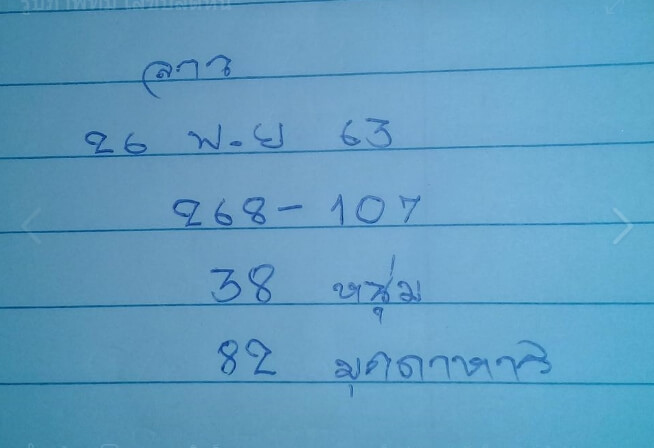 ลาว
26 พ.ย 63
268 - 107
38 หนุ่ม
82 มุกดาหาร